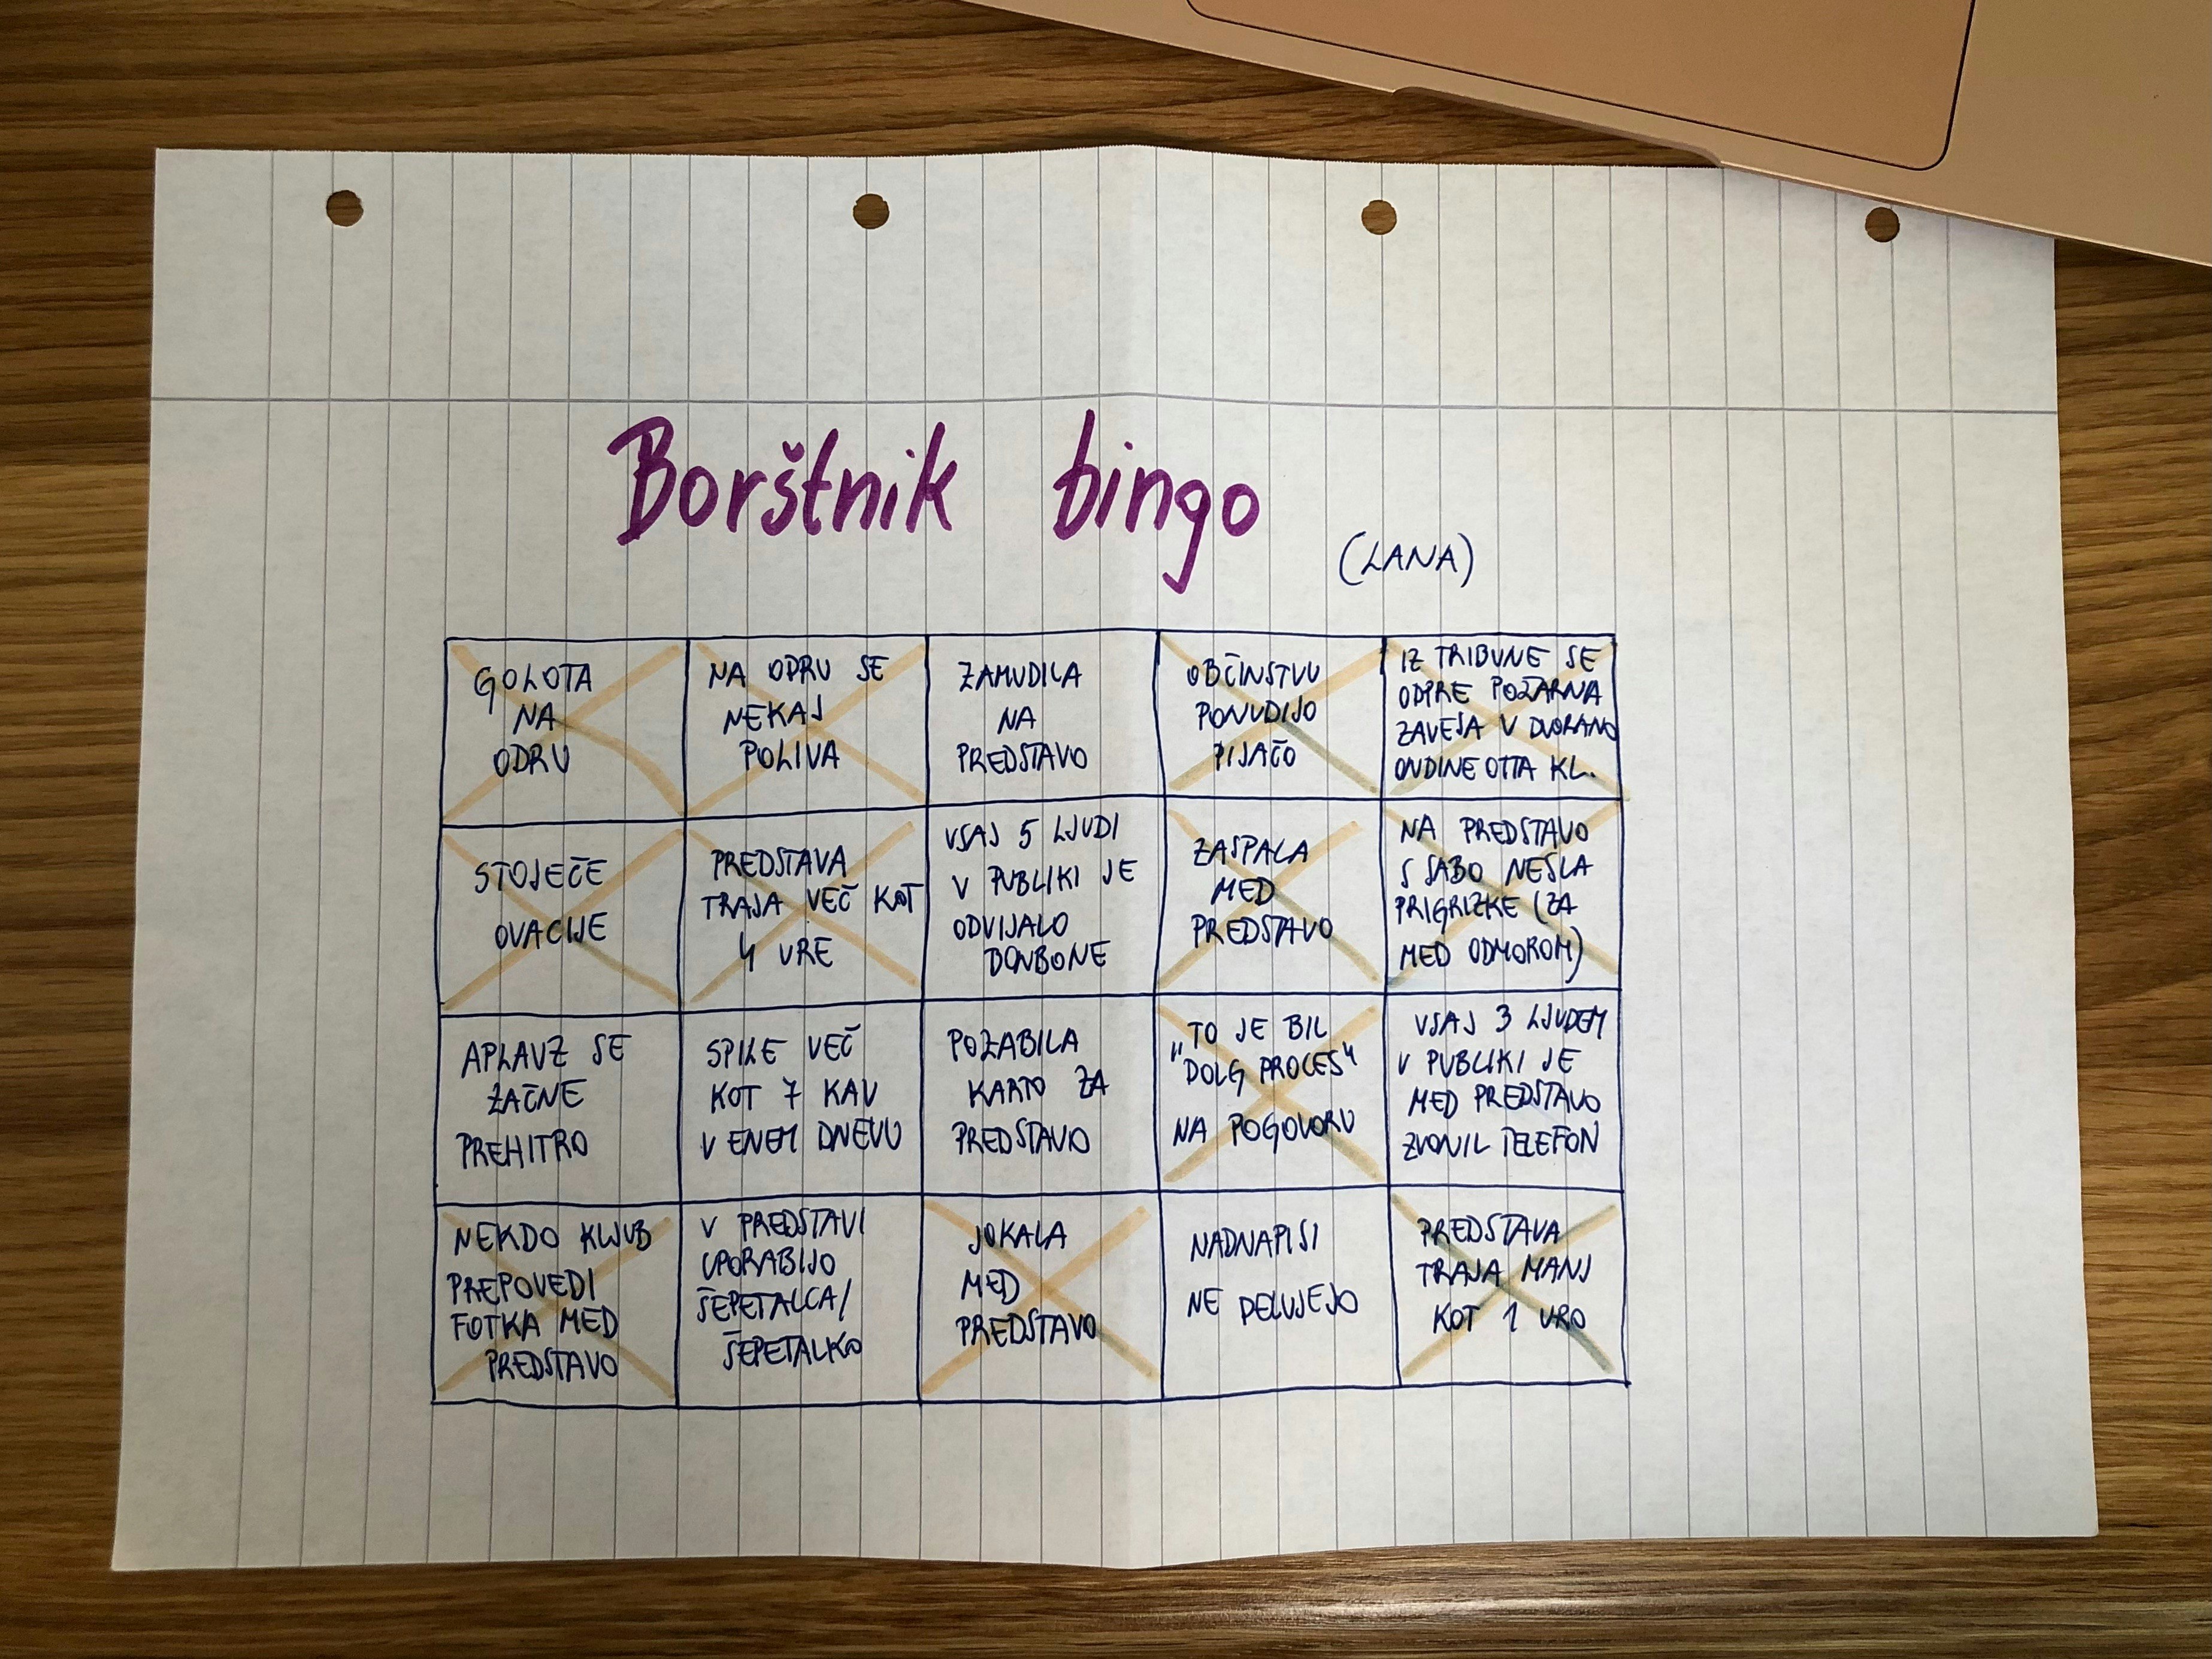 Borštnik bingo
(LANA)
GOLOTA
NA
ODRU
NA ODRU SE
NEKAJ
POLIVA
ZAMUDILA
NA
PREDSTAVO
OBČINSTVU
PONUDIJO
PIJAČO
IZ TRIBUNE SE
ODPRE POŽARNA
ZAVESA V DVORANO
ONDINE OTTA KL.
STOJEČE
OVACIJE
PREDSTAVA
TRAJA VEČ KOT
4 URE
VSAJ 5 LJUDI
V PUBLIKI JE
ODVIJALO
BONBONE
ZASPALA
MED
PREDSTAVO
NA PREDSTAVO
S SABO NESLA
PRIGRIZKE (ZA
MED ODMOROM)
APLAVZ SE
ZAČNE
PREHITRO
SPILE VEČ
KOT 7 KAV
V ENEM DNEVU
POZABILA
KARTO ZA
PREDSTAVO
"TO JE BIL
DOLG PROCES"
NA POGOVORU
VSAJ 3 LJUDEM
V PUBLIKI JE
MED PREDSTAVO
ZVONIL TELEFON
NEKDO KLJUB
PREPOVEDI
FOTKA MED
PREDSTAVO
V PREDSTAVI
UPORABIJO
ŠEPETALCA/
ŠEPETALKO
JOKALA
MED
PREDSTAVO
NADNAPISI
NE DELUJEJO
PREDSTAVA
TRAJA MANJ
KOT 1 URO